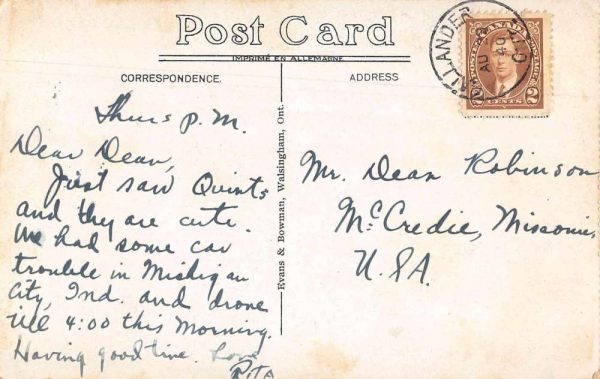 Post Card
IMPRIMÉ EN ALLEMAGNE
CORRESPONDENCE.
ADDRESS
Thurs P.M.
Dear Dean,
Just saw Quints
and they are cute.
We had some car
trouble in Michigan
City, Ind. and drove
till 4:00 this Morning.
Having good time. Love
Rita
Evans & Bowman, Walsingham, Ont.
CALLANDER
AU
40
ONT.
CANADA
POSTES POSTAGE
2 CENTS 2
Mr. Dean Robinson
McCredie, Missouri,
U.S.A.